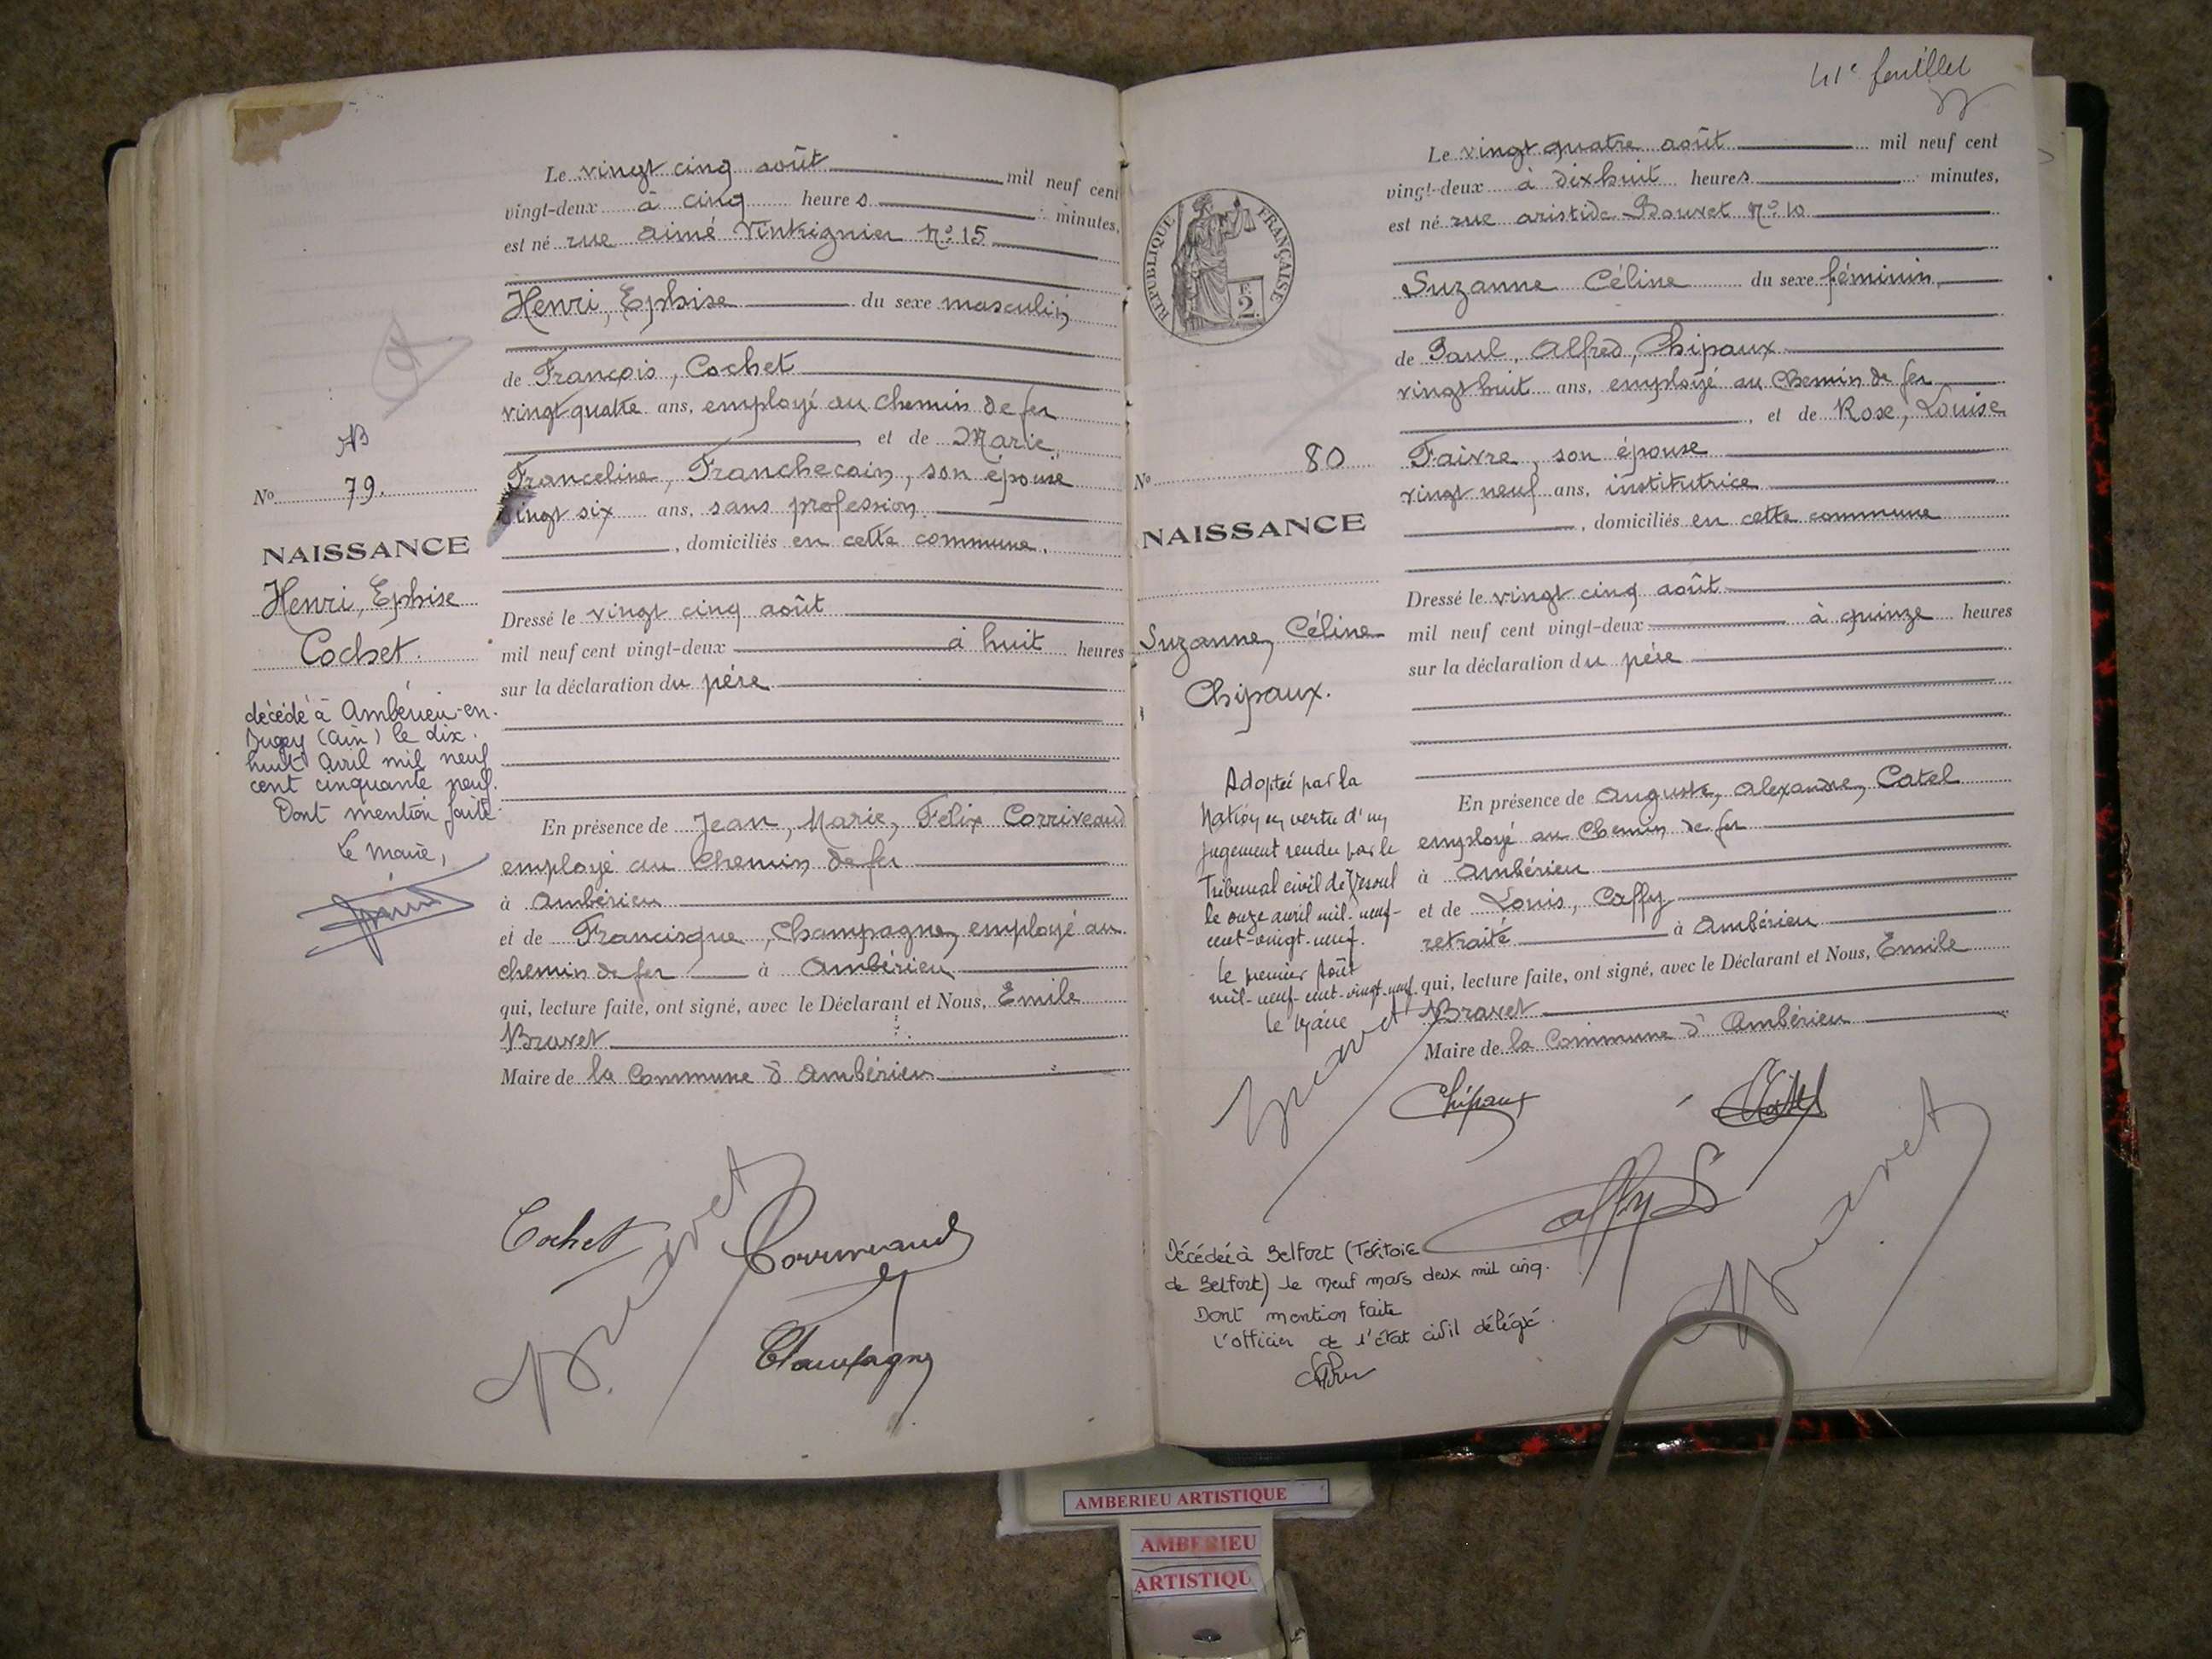 Le vingt cinq août mil neuf cent
vingt-deux à cinq heures minutes,
est né rue aimé Vintrignier N° 15
Henri, Ephise du sexe masculin
de François, Cochet
vingt quatre ans, employé au chemin de fer
et de Marie,
Franceline, Franchecain, son épouse
vingt six ans, sans profession
, domiciliés en cette commune.
Dressé le vingt cinq août
mil neuf cent vingt-deux à huit heures
sur la déclaration du père
En présence de Jean, Marie, Felix Corriveaud
employé au chemin de fer
à Ambérieu
et de Francisque, Champagne, employé au
chemin de fer à Ambérieu
qui, lecture faite, ont signé, avec le Déclarant et Nous, Emile
Bravet
Maire de la Commune d'Ambérieu
Cochet
Bravet
Corriveaud
Champagne
N° 79.
NAISSANCE
Henri, Ephise
Cochet.
décédé à Ambérieu-en-
Bugey (Ain) le dix-
huit avril mil neuf
cent cinquante neuf.
Dont mention faite
Le maire,
41e feuillet
RÉPUBLIQUE FRANÇAISE
2
Le vingt quatre août mil neuf cent
vingt-deux à dixhuit heures minutes,
est né rue aristide Bouvet N° 10
Suzanne Céline du sexe féminin,
de Paul, Alfred, Chipaux
vingt huit ans, employé au chemin de fer
, et de Rose, Louise
Faivre, son épouse
vingt neuf ans, institutrice
, domiciliés en cette commune
Dressé le vingt cinq août
mil neuf cent vingt-deux à quinze heures
sur la déclaration du père
En présence de Auguste, Alexandre, Catel
employé au Chemin de fer
à Ambérieu
et de Louis, Caffy
retraité à Ambérieu
qui, lecture faite, ont signé, avec le Déclarant et Nous, Emile
Bravet
Maire de la Commune d'Ambérieu
Chipaux
Catel
Caffy
Bravet
N° 80
NAISSANCE
Suzanne, Céline
Chipaux.
Adoptée par la
Nation en vertu d'un
jugement rendu par le
Tribunal civil de Vesoul
le onze avril mil-neuf-
cent-vingt-neuf.
le premier Août
mil-neuf-cent-vingt-neuf
le Maire
Bravet
Décédée à Belfort (Territoire
de Belfort) le neuf mars deux mil cinq.
Dont mention faite
L'officier de l'état civil délégué.
AMBERIEU ARTISTIQUE
AMBERIEU
ARTISTIQU